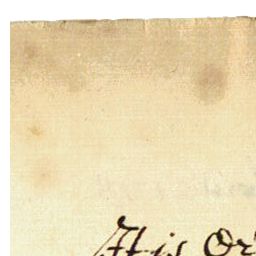 It is Or